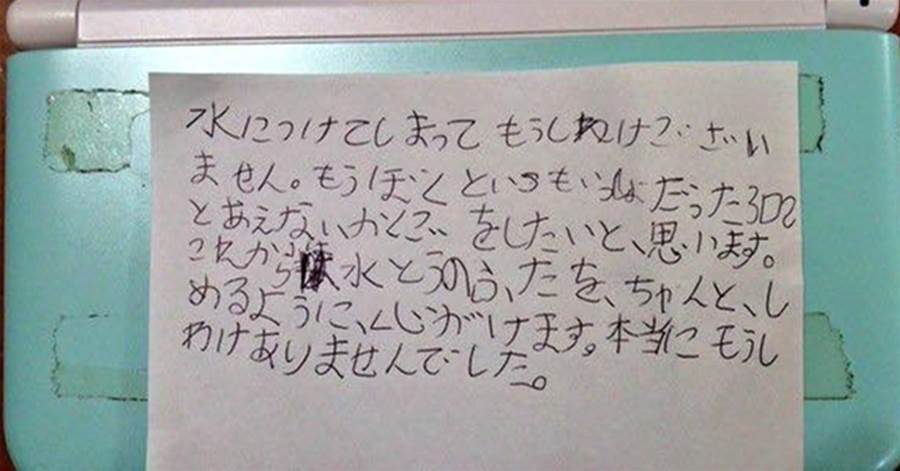 水につけてしまって もうしわけございい
ません。もうぼくといつもいっしょだった3DSと
あえないかくごをしたいと、思います。
これからは水とうのふたを、ちゃんと、し
めるように、くじがけます。本当にもうし
わけありませんでした。